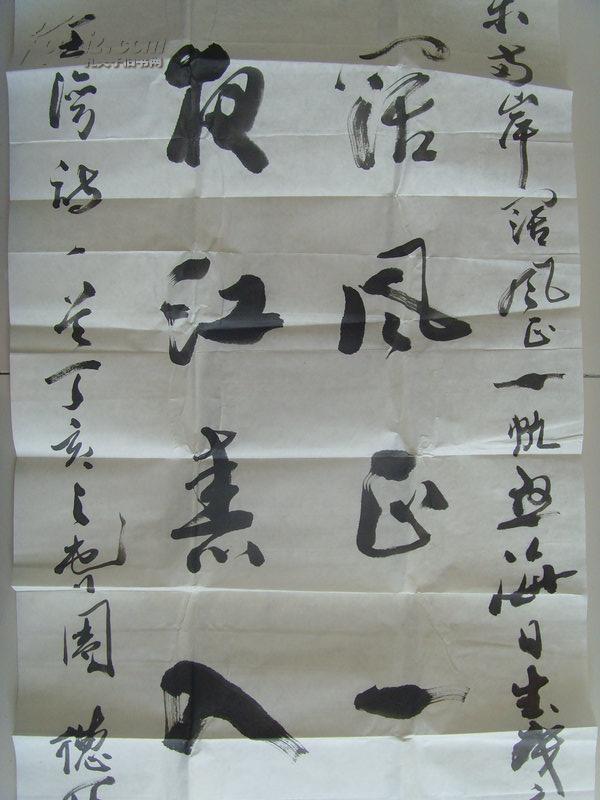 两岸阔风正一帆悬海日生残
阔风正一
夜江春入
王湾诗一首丁亥之春德
孔夫子旧书网